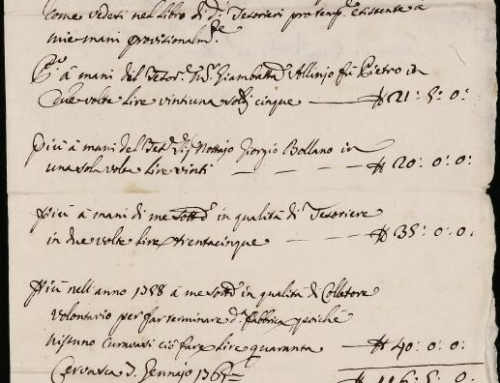 come vedesi nel Libro di d.i Tesorieri pro temp.e esistente a
mie mani provisionalm.e
P.o à mani del Tesor.e M.r Giambatt.a Allinjo fu Pietro in
due volte Lire vintiuna soldi cinque — ₶ 21: 5: 0:
Più à mani del Nottajo Giorgio Bollano in
una sola volta Lire vinti — — — ₶ 20: 0: 0:
Più à mani di me Sott.o in qualità di Tesoriere
in due volte Lire trentacinque — — — ₶ 35: 0: 0.
Più nell'anno 1758 à me Sott.o in qualità di Colletore
volontario per far terminare d.a fabbrica poiché
nissuno curavasi ciò fare Lire quaranta ₶ 40: 0: 0
Cervasca Gennajo 176
₶ 116: 5: 0: